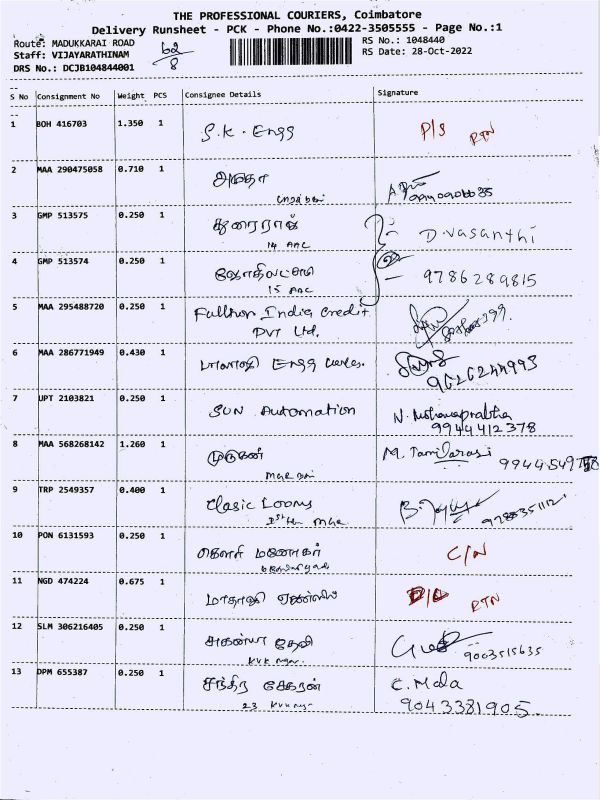 THE PROFESSIONAL COURIERS, Coimbatore
Delivery Runsheet - PCK - Phone No.:0422-3505555 - Page No.:1
Route: MADUKKARAI ROAD
Staff: VIJAYARATHINAM
DRS No.: DCJB104844001
62/8
RS No.: 1048440
RS Date: 28-Oct-2022
S No Consignment No Weight PCS Consignee Details Signature
1 BOH 416703 1.350 1 S.K. Engg P/S RTN
2 MAA 290475058 0.710 1 அமுதா
3 GMP 513575 0.250 1 துரைராஜ் D. Vasanthi
14 AAC
4 GMP 513574 0.250 1 ஜோதிலட்சுமி 9786289815
15 AAC
5 MAA 295488720 0.250 1 Fullron India Credit
PVT Ltd.
6 MAA 286771949 0.430 1 பாலாஜி Engg 9626244993
7 UPT 2103821 0.250 1 SUN Automation N.
9944412378
8 MAA 568268142 1.260 1 முருகன் M. Tamilarasi
9 TRP 2549357 0.400 1 Clasic Looms
10 PON 6131593 0.250 1 கௌரி மனோகர் C/N
11 NGD 474224 0.675 1 D/L RTN
12 SLM 306216405 0.250 1 அகன்யா தேவி 9003515635
KVK
13 DPM 655387 0.250 1 சந்திர சேகரன் C. Mala
23 9043381905